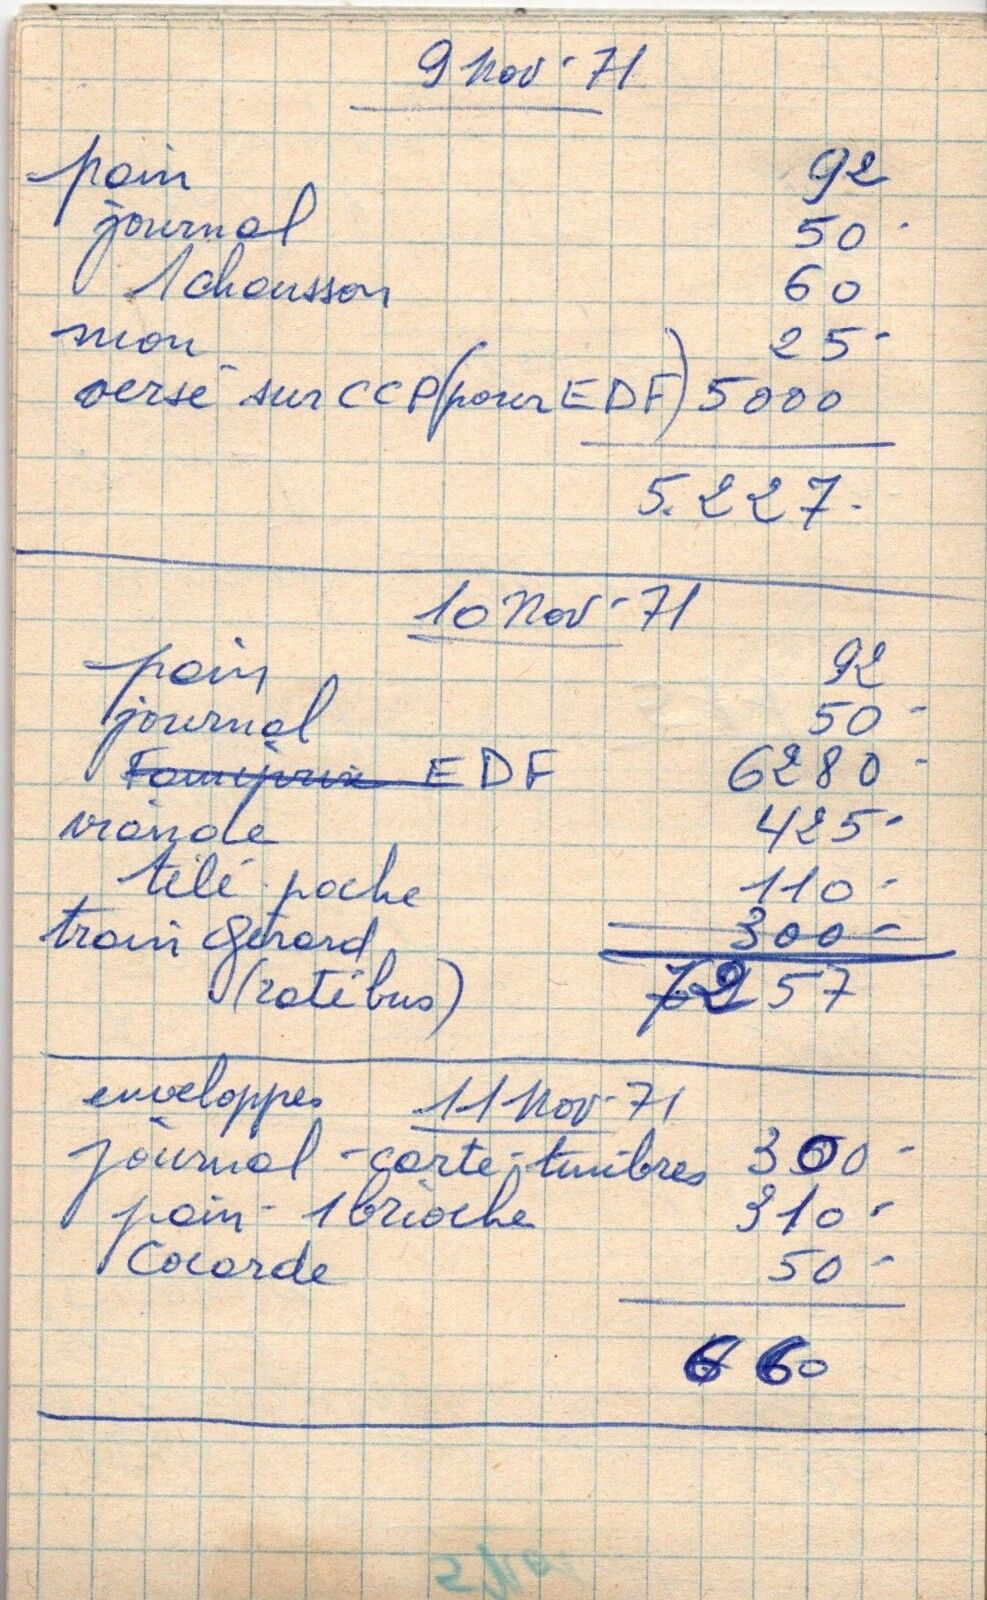 9 Nov - 71
pain 92
journal 50 -
1 chausson 60
mou 25 -
versé sur CCP (pour EDF) 5000
5.227 -
10 Nov - 71
pain 92
journal 50 -
EDF 6280 -
viande 425 -
télé poche 110 -
train Gérard 300 -
(ratébus) 7257
enveloppes 11 Nov - 71
journal - carte - timbres 300 -
pain - 1 brioche 310 -
Cocarde 50 -
660